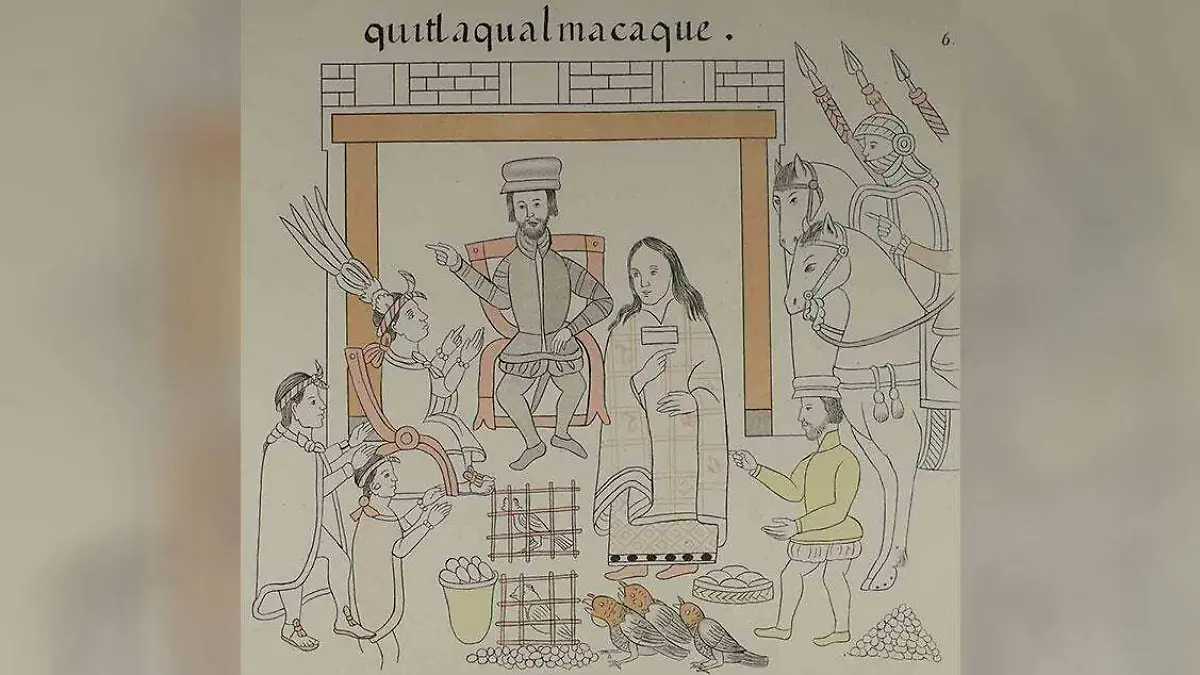 quitlaqualmacaque .
6.